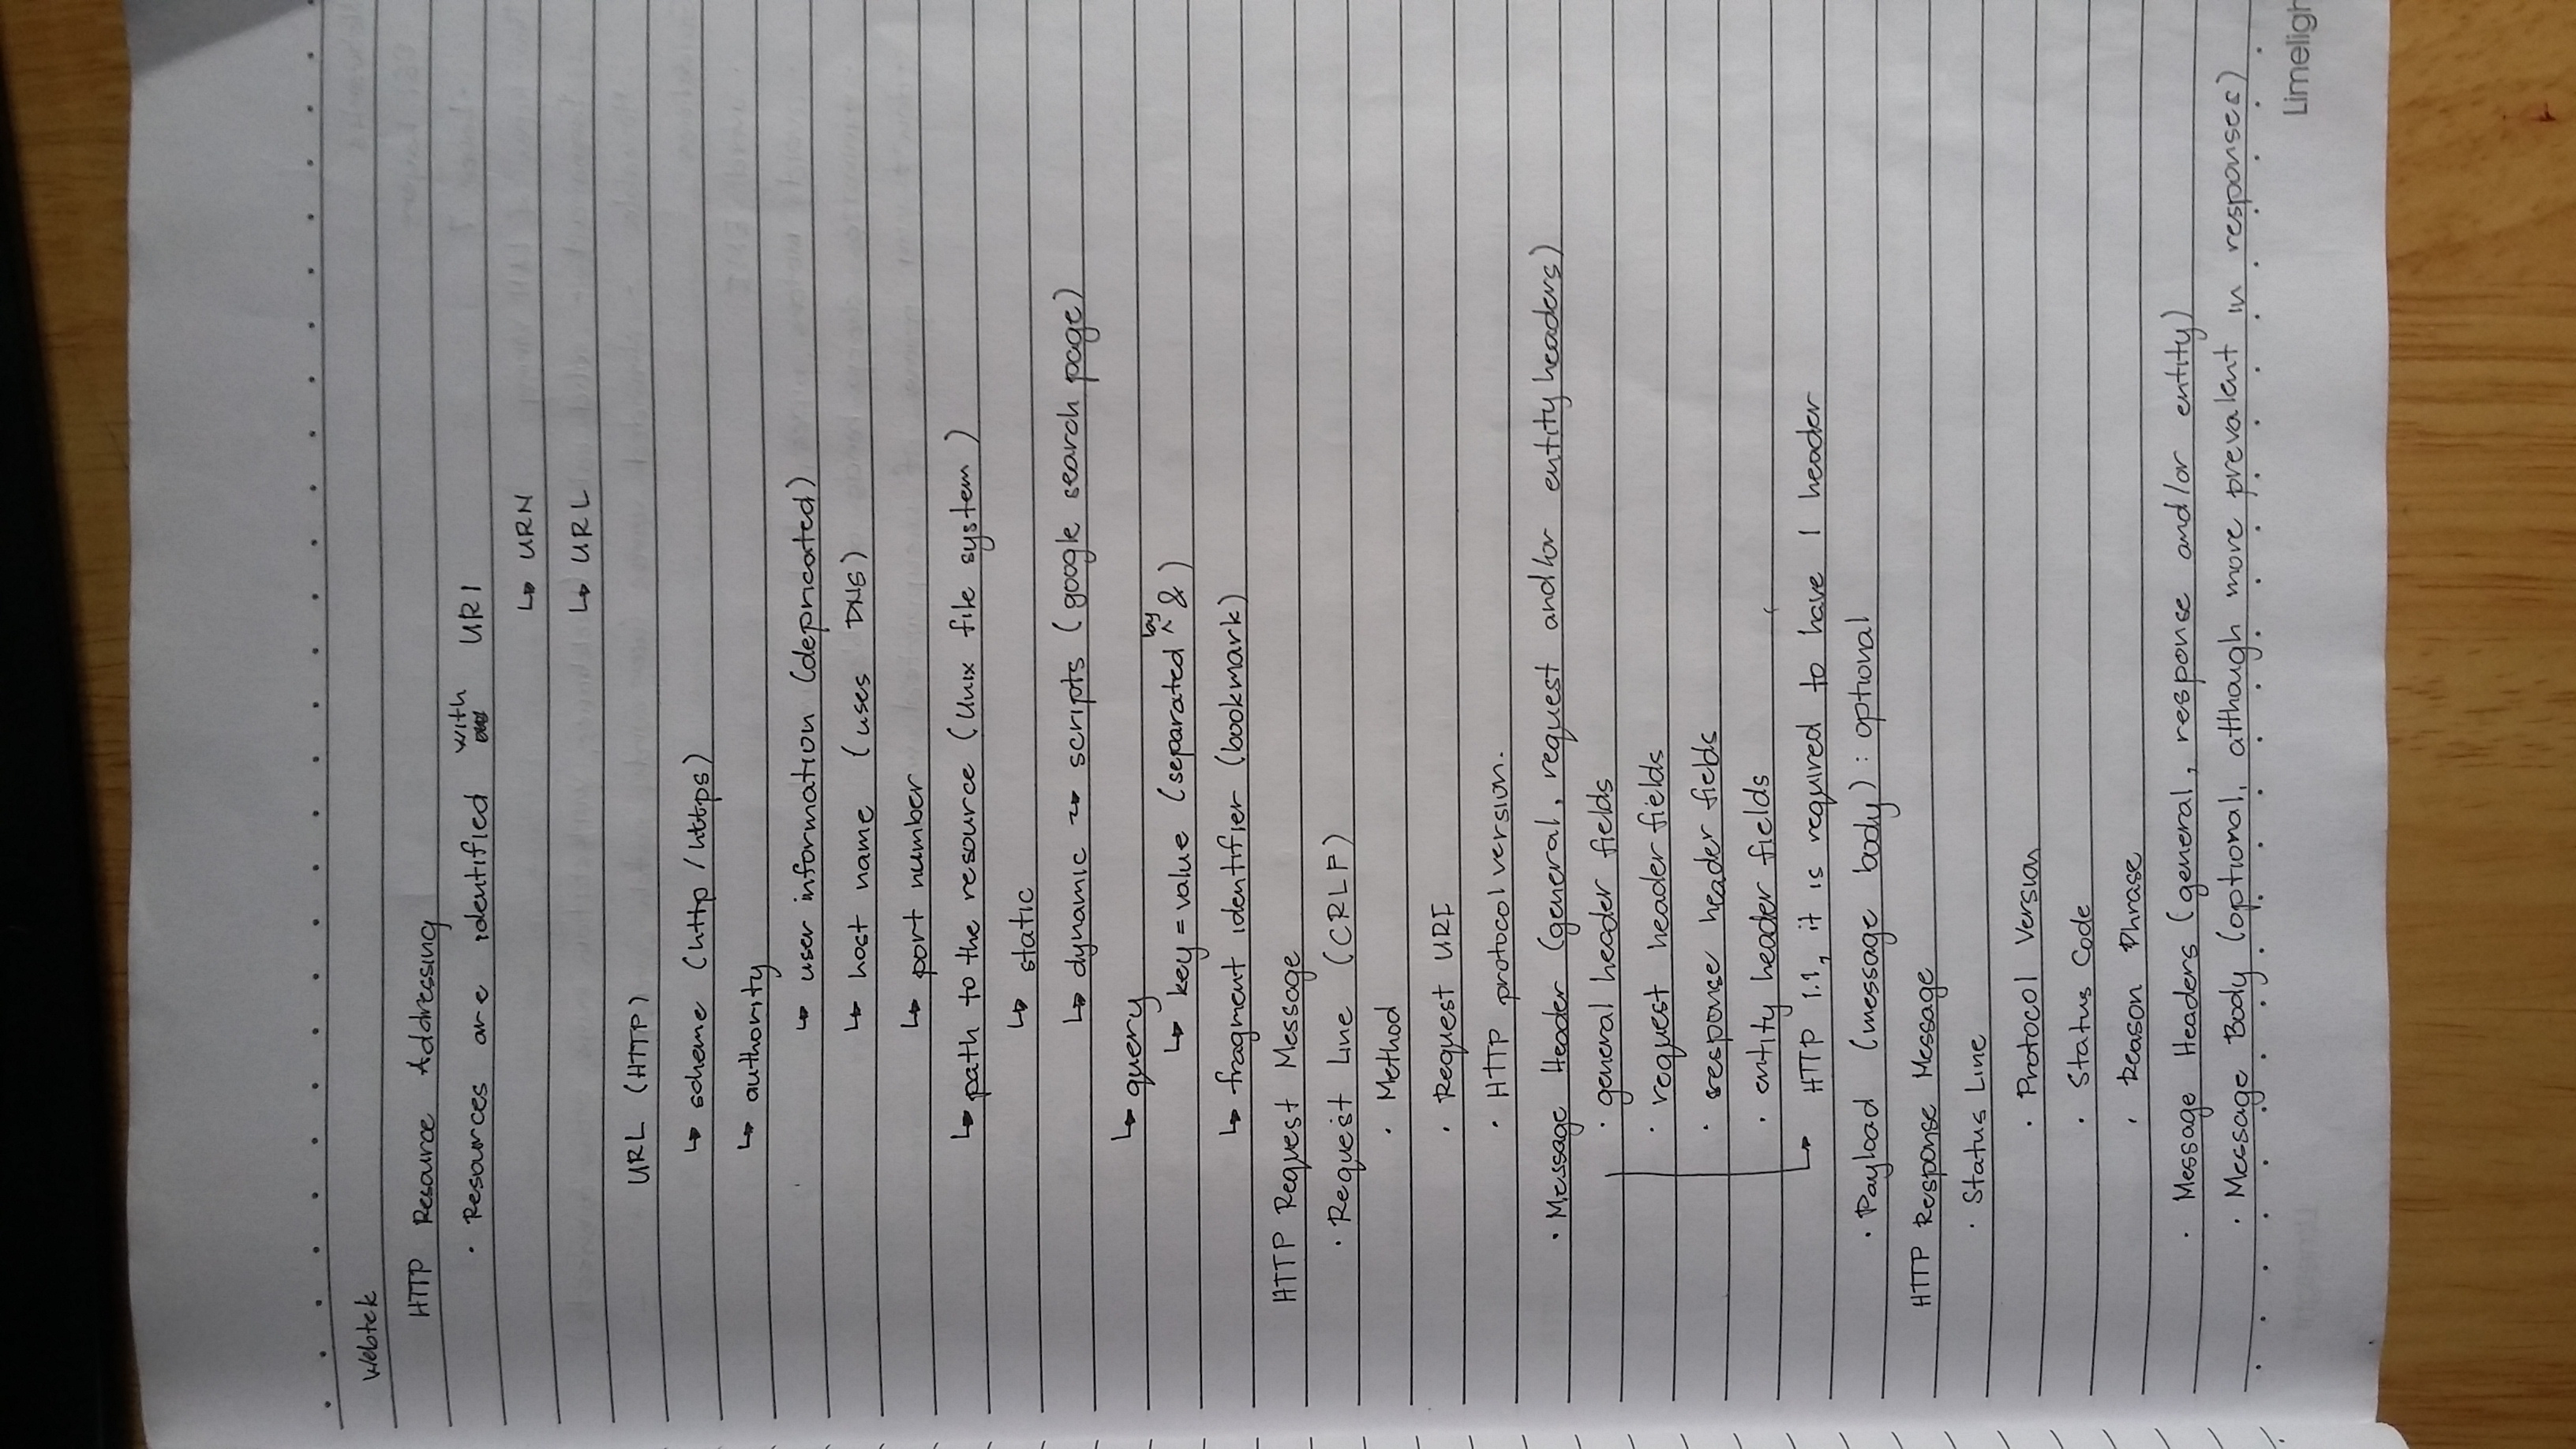 Webtek
HTTP Resource Addressing
· Resources are identified with URI
↳ URN
↳ URL
URL (HTTP)
↳ scheme (http / https)
↳ authority
↳ user information (depricated)
↳ host name (uses DNS)
↳ port number
↳ path to the resource (Unix file system)
↳ static
↳ dynamic ↝ scripts (google search page)
↳ query
↳ key = value (separated by &)
↳ fragment identifier (bookmark)
HTTP Request Message
· Request Line (CRLF)
· Method
· Request URI
· HTTP protocol version.
· Message Header (general, request and/or entity headers)
· general header fields
· request header fields
· response header fields
· entity header fields
↳ HTTP 1.1, it is required to have 1 header
· Payload (message body) : optional
HTTP Response Message
· Status Line
· Protocol Version
· Status Code
· Reason Phrase
· Message Headers (general, response and/or entity)
· Message Body (optional, although more prevalent in responses)
Limeligh